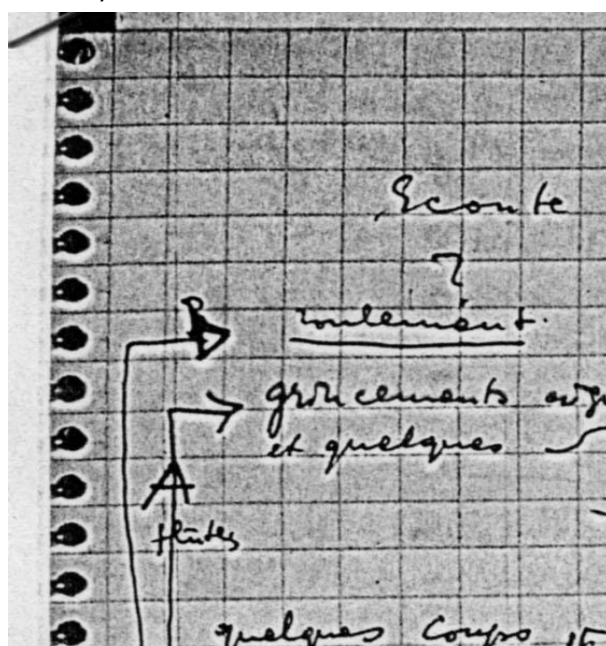 Ecoute
B
roulement.
grincements
et quelques
A
flûtes
quelques coups et